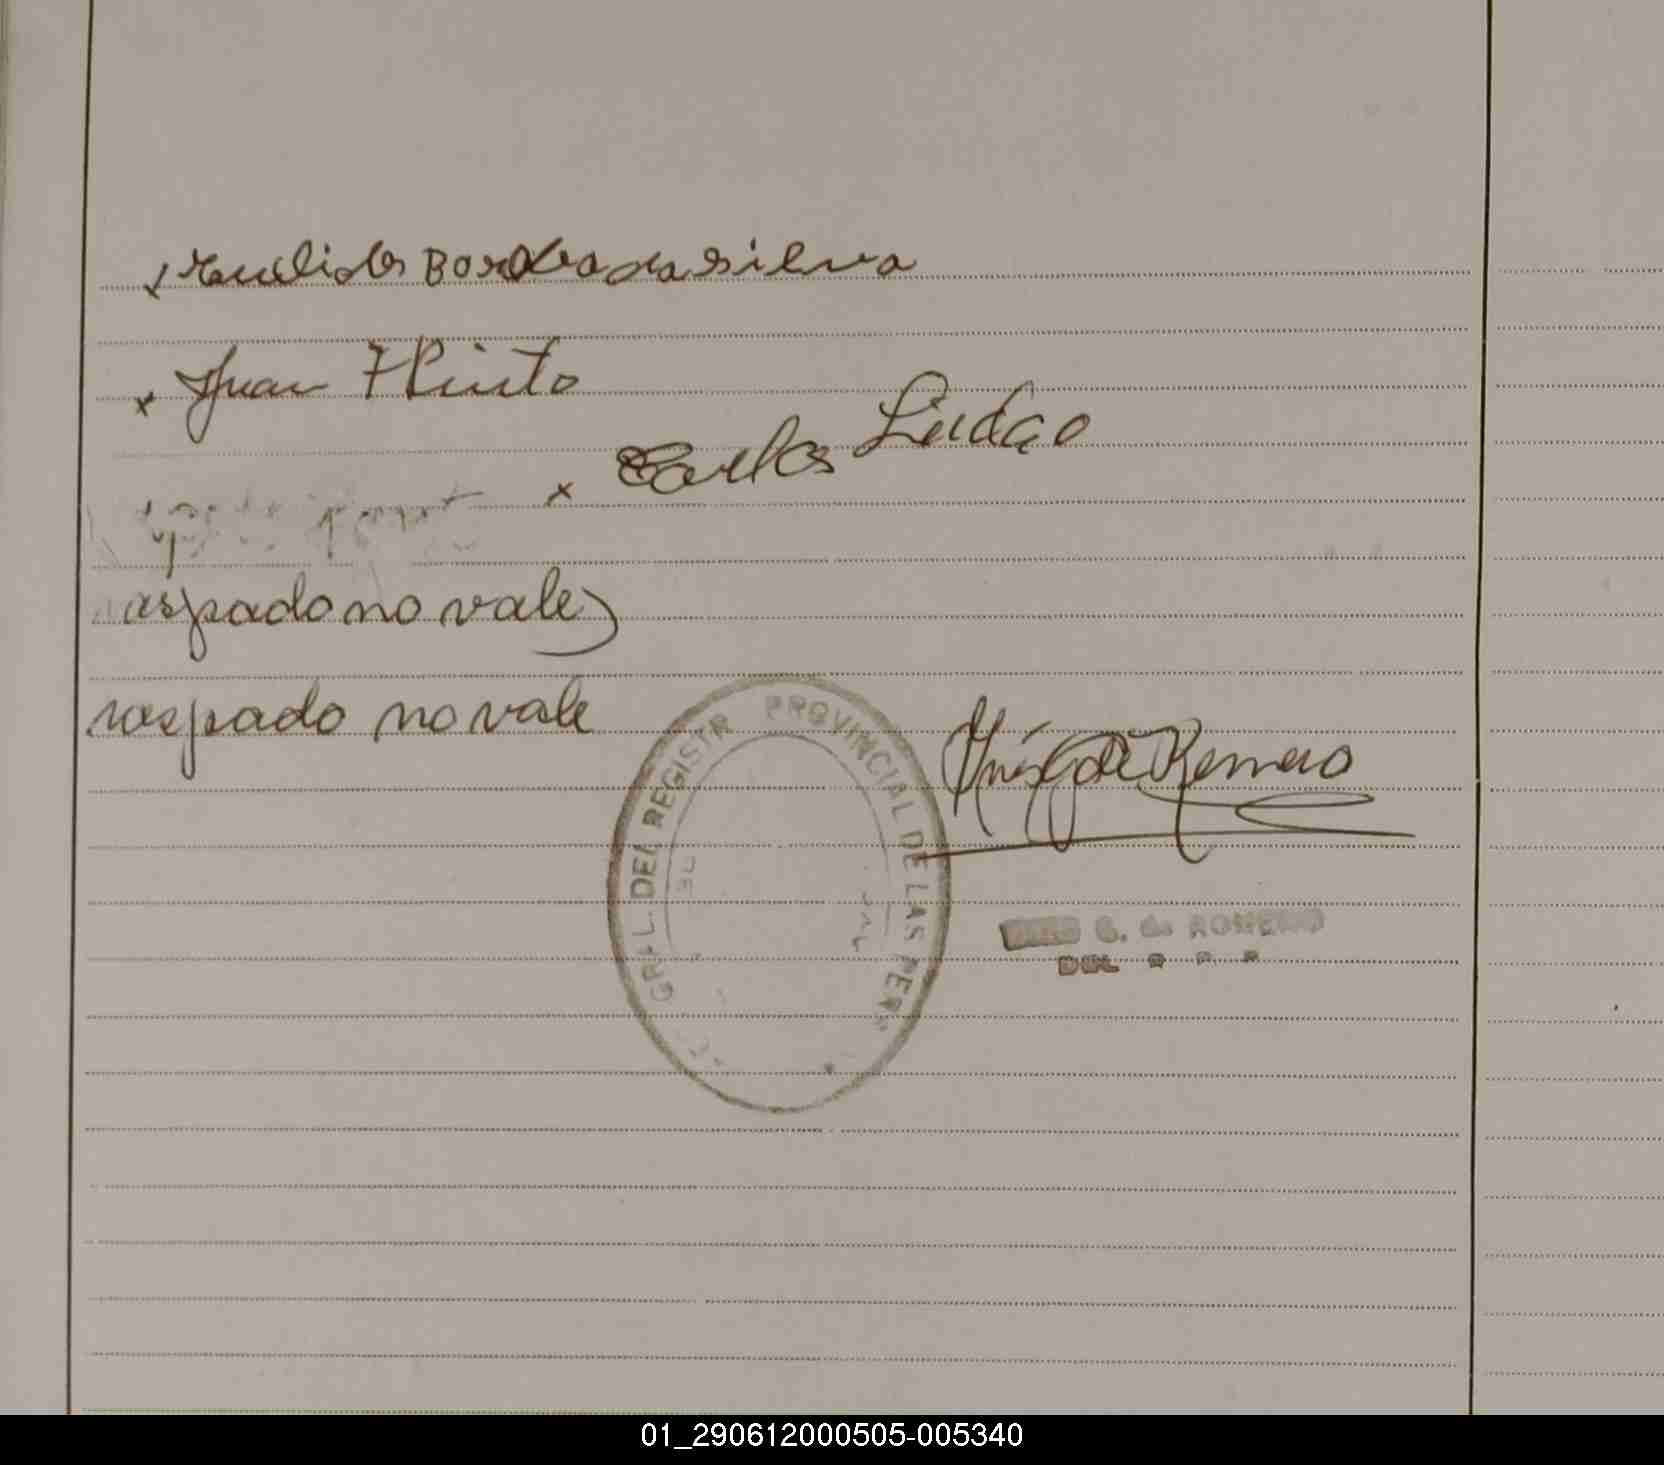 Euclides Borba da silva
x Juan Pinto
x Carlos
aspado no vale)
raspado no vale
GRAL. DEL REGISTR PROVINCIAL DE LAS PER
Inés G de Romero
G. de ROMERO
DEL
01_290612000505-005340